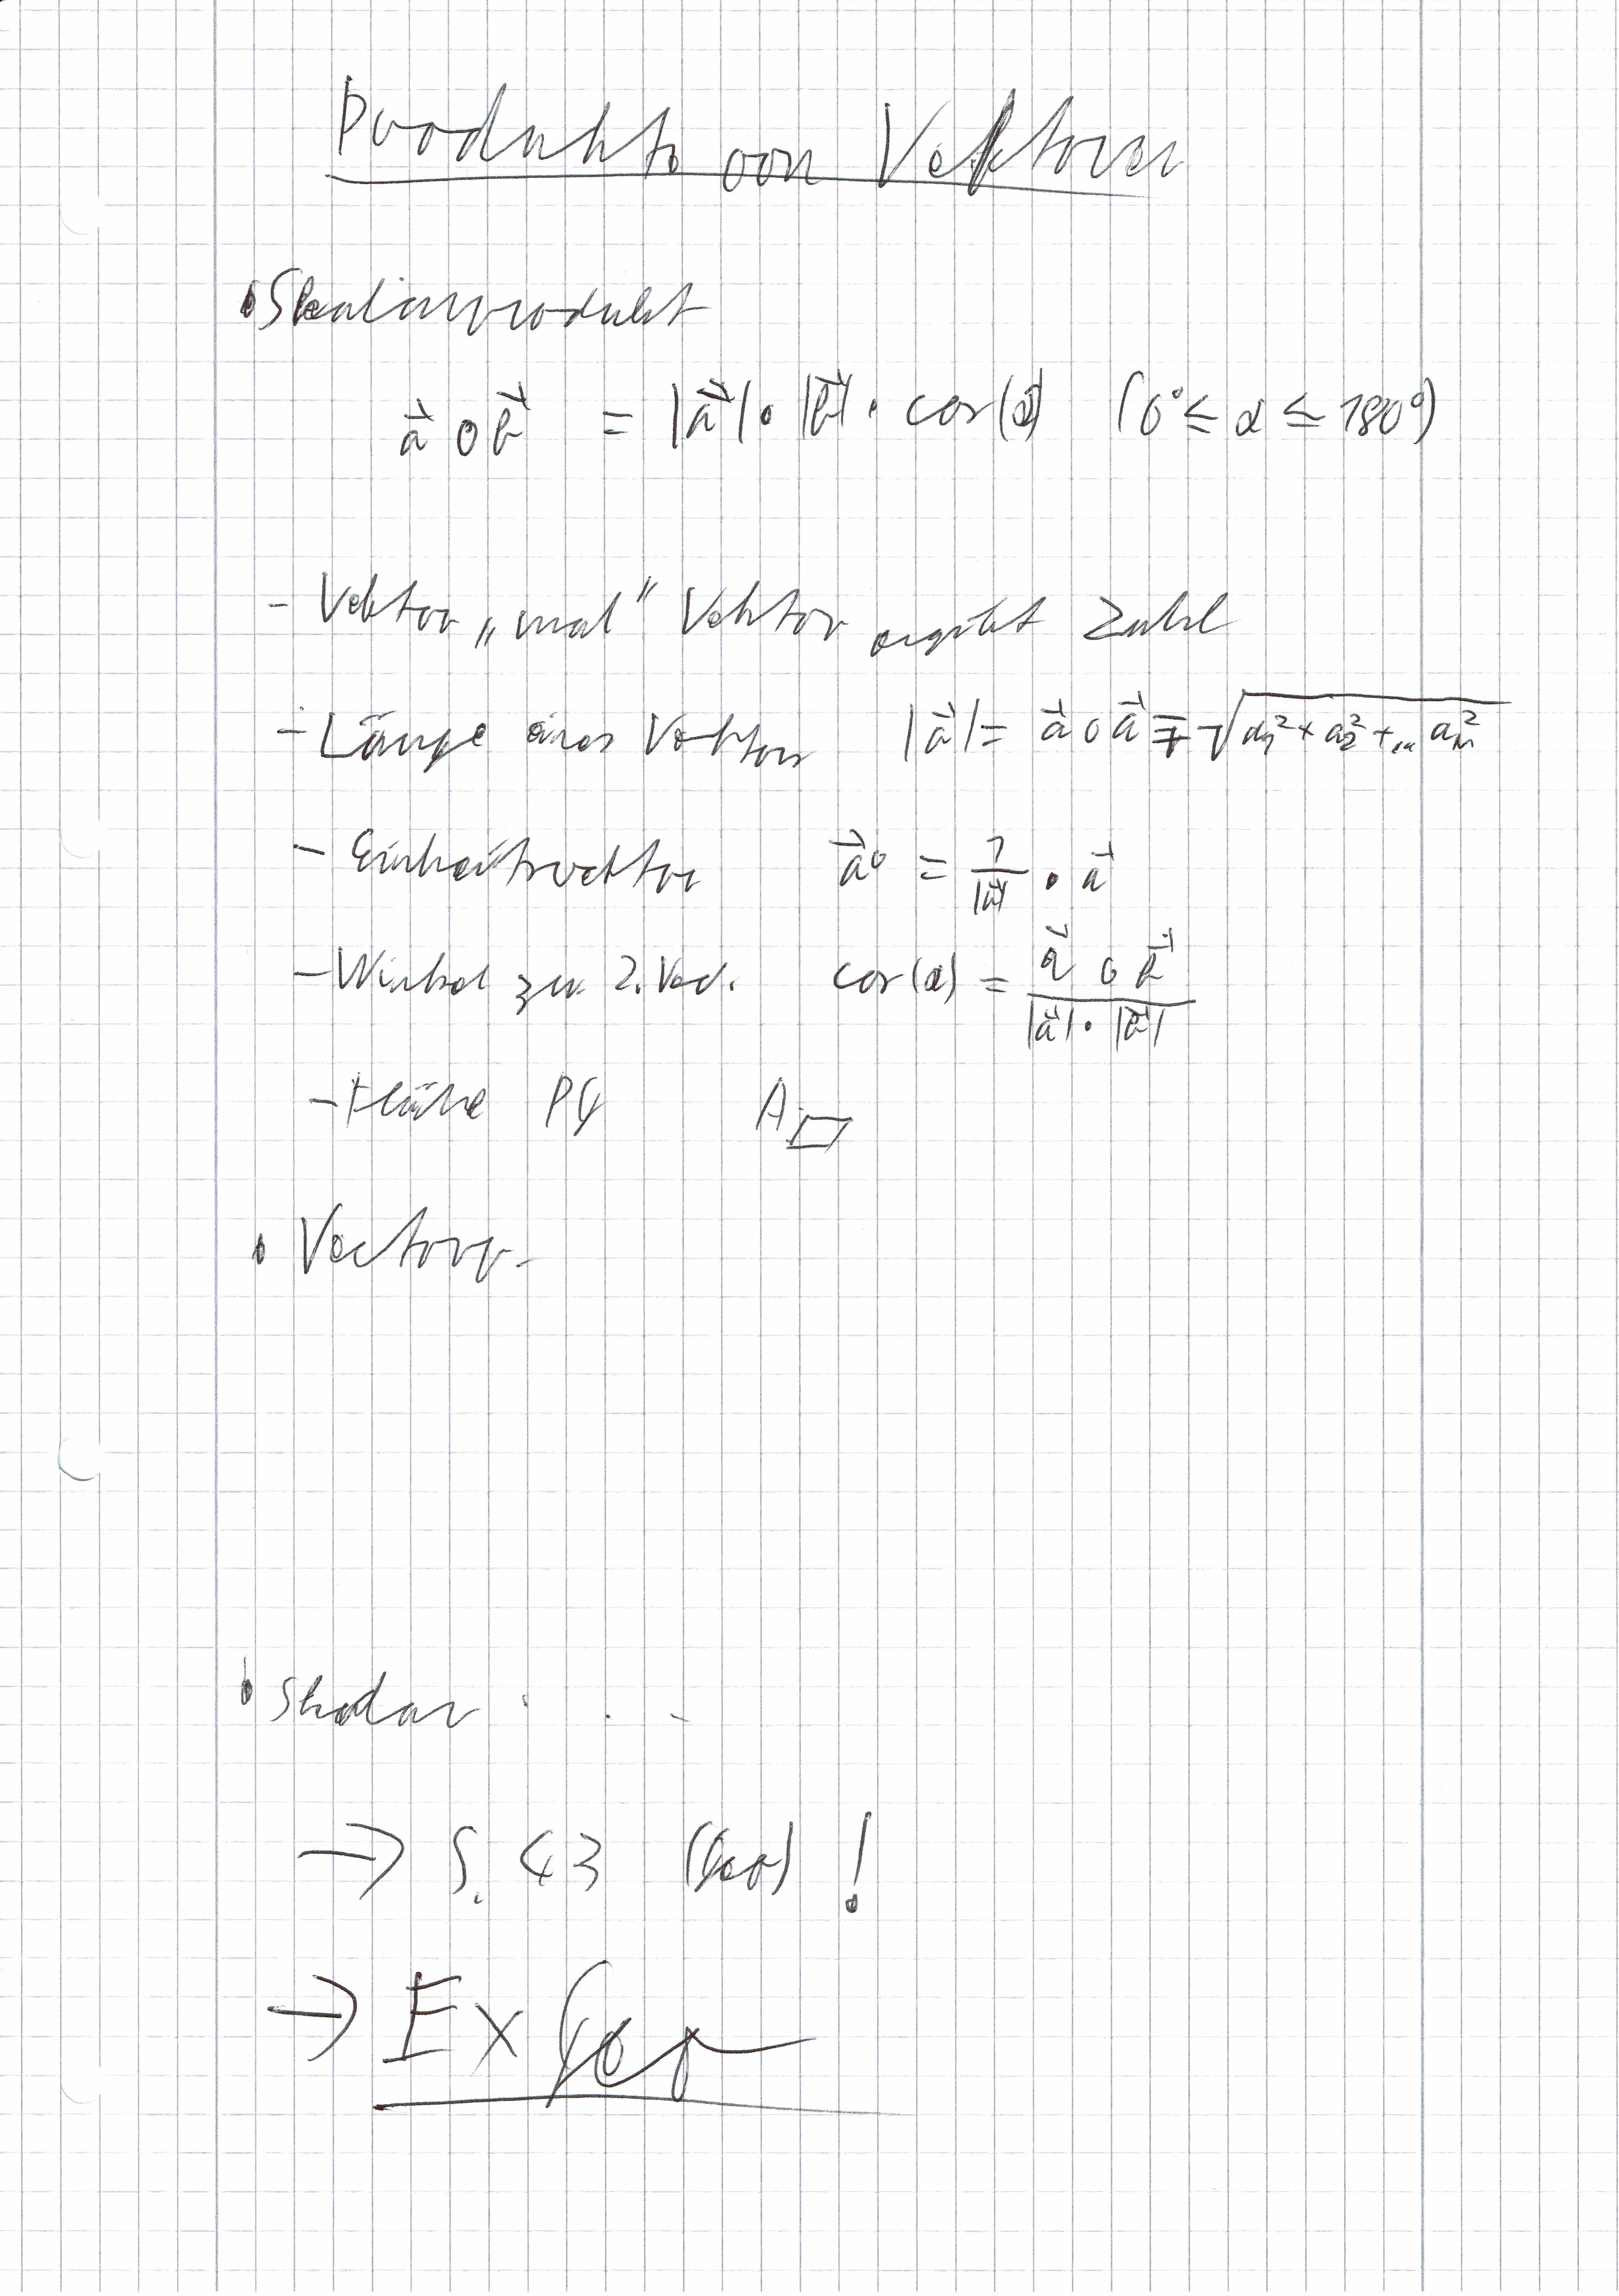 Produkte von Vektoren
• Skalarprodukt
a⃗ ∘ b⃗ = |a⃗| • |b⃗| • cos(α) (0° ≤ α ≤ 180°)
- Vektor „mal" Vektor ergibt Zahl
- Länge eines Vektors |a⃗| = a⃗ ∘ a⃗ = √(a₁² + a₂² + ... aₙ²)
- Einheitsvektor a⃗° = 1/|a⃗| • a⃗
- Winkel zw. 2. Vec. cos(α) = (a⃗ ∘ b⃗)/(|a⃗| • |b⃗|)
- Fläche A▱
• Vectorp.
• Skalar . . -
→ S. 43 !
→ Ex